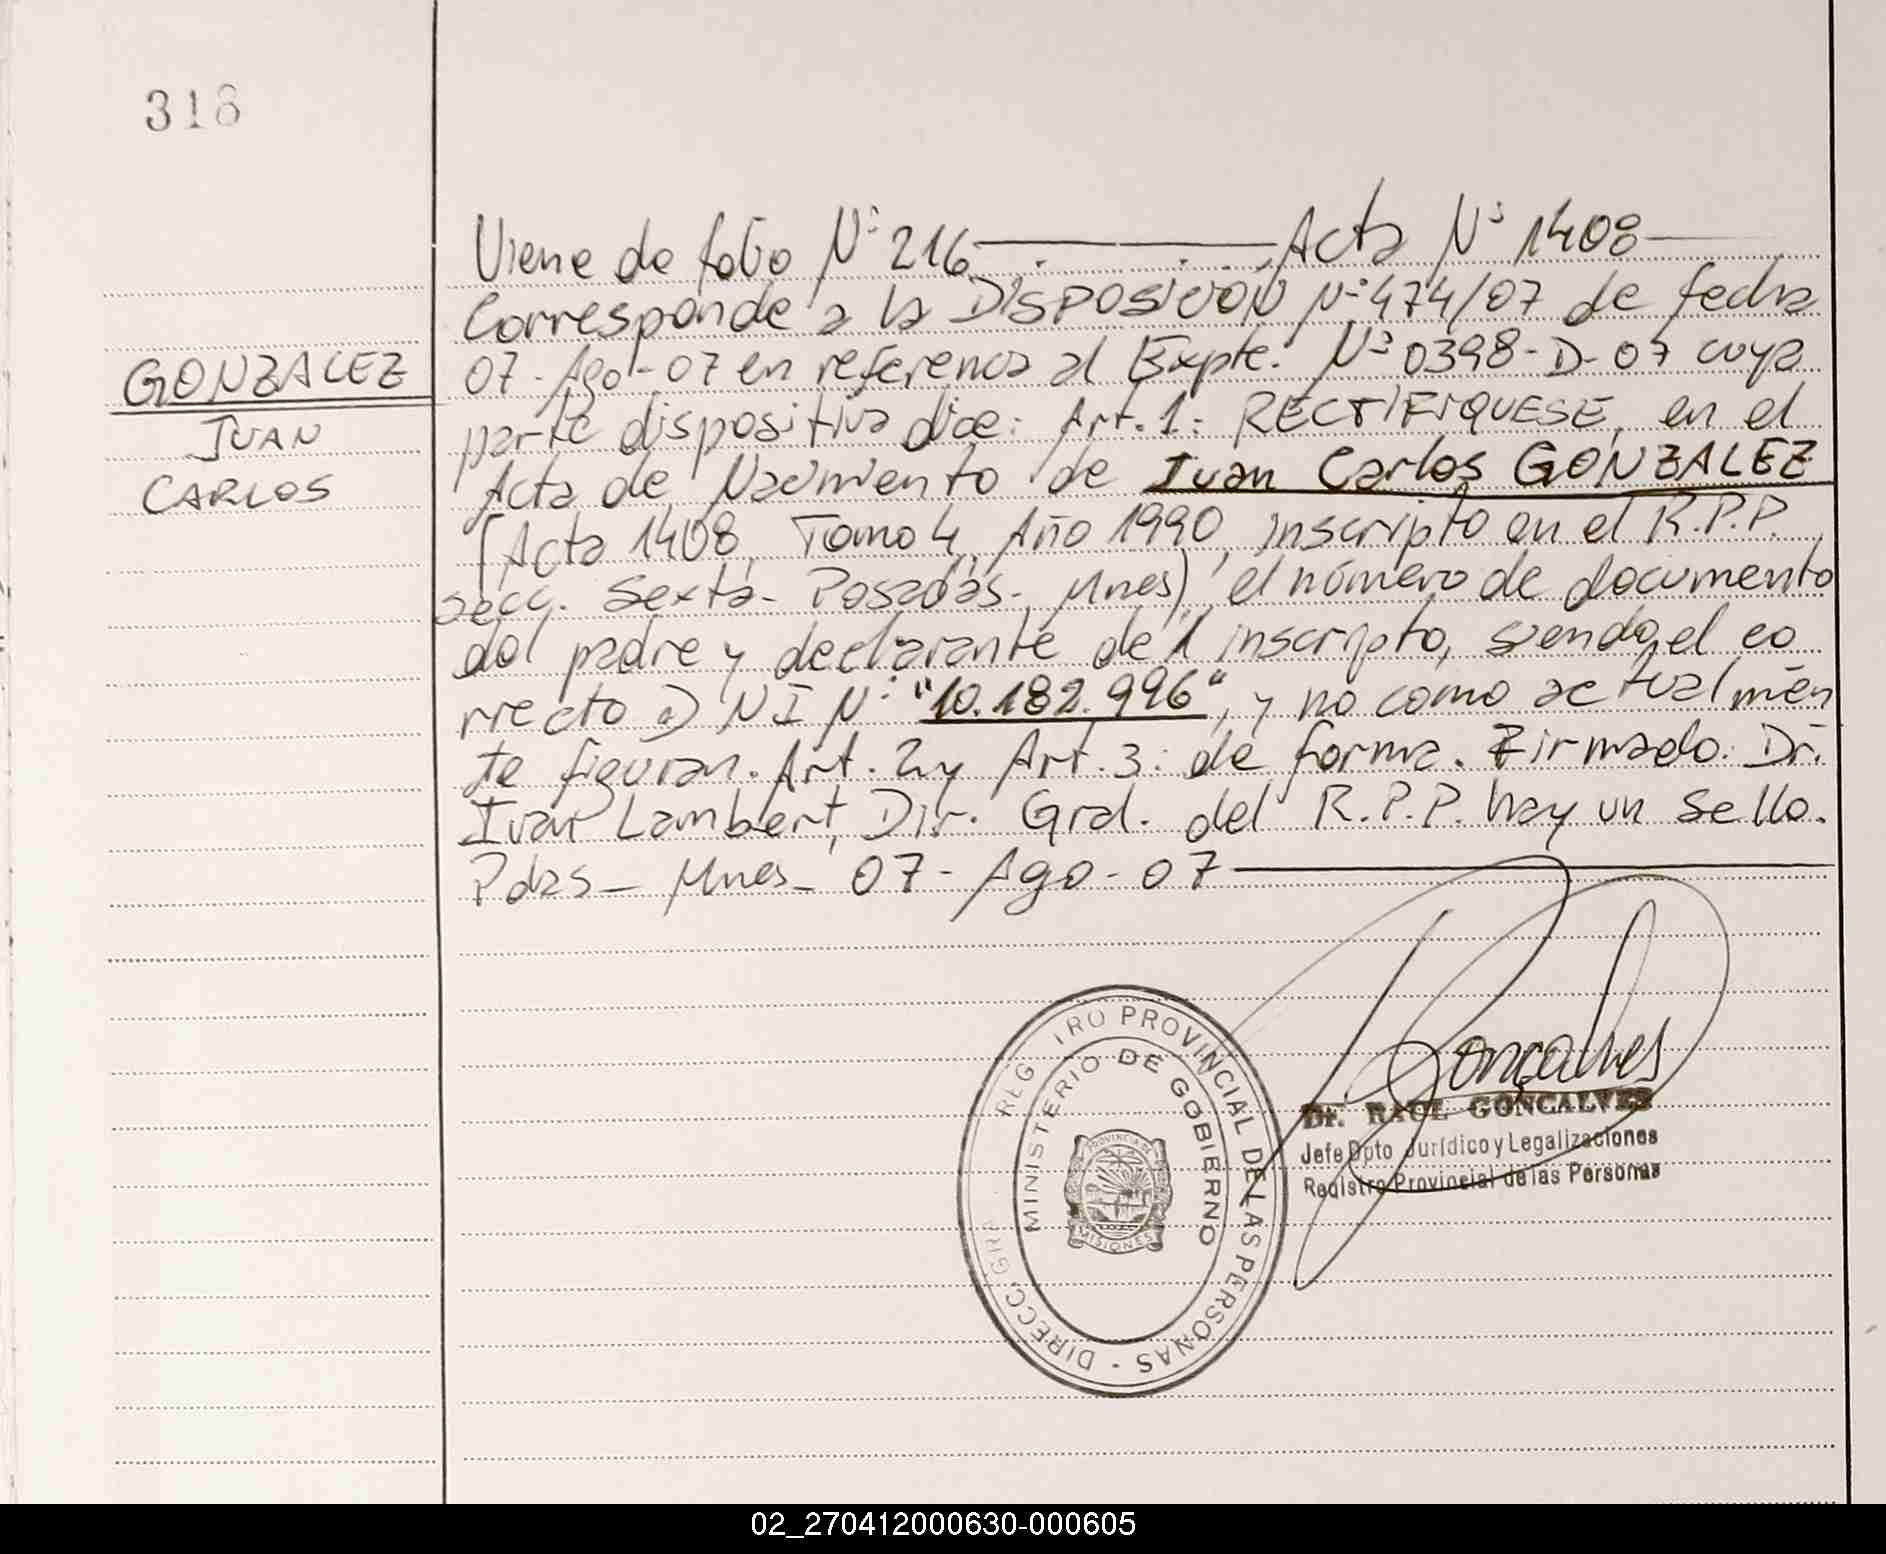 318
Viene de folio Nº 216 ———— Acta Nº 1408 —
Corresponde a la DISPOSICION Nº 474/07 de fecha
GONZALEZ
07-Ago-07 en referencia al Expte. Nº 0398-D-07 cuya
JUAN
parte dispositiva dice: Art. 1: RECTIFIQUESE, en el
CARLOS
Acta de Nacimiento de Juan Carlos GONZALEZ
(Acta 1408, Tomo 4, Año 1990, inscripto en el R.P.P.
secc. Sexta - Posadas - Mnes), el número de documento
del padre y declarante del inscripto, siendo el co
rrecto a) DNI Nº "10.182.996", y no como actualmen
te figuran. Art. 2 y Art. 3: de forma. Firmado: Dr.
Ivan Lambert, Dir. Gral. del R.P.P. hay un sello.
Pdas - Mnes - 07 - Ago - 07 ————
REGISTRO PROVINCIAL DE LAS PERSONAS - DIRECC. GRAL
MINISTERIO DE GOBIERNO
PROVINCIA DE
MISIONES
Goncalves
Dr. RAUL GONCALVES
Jefe Dpto Jurídico y Legalizaciones
Registro Provincial de las Personas
02_270412000630-000605